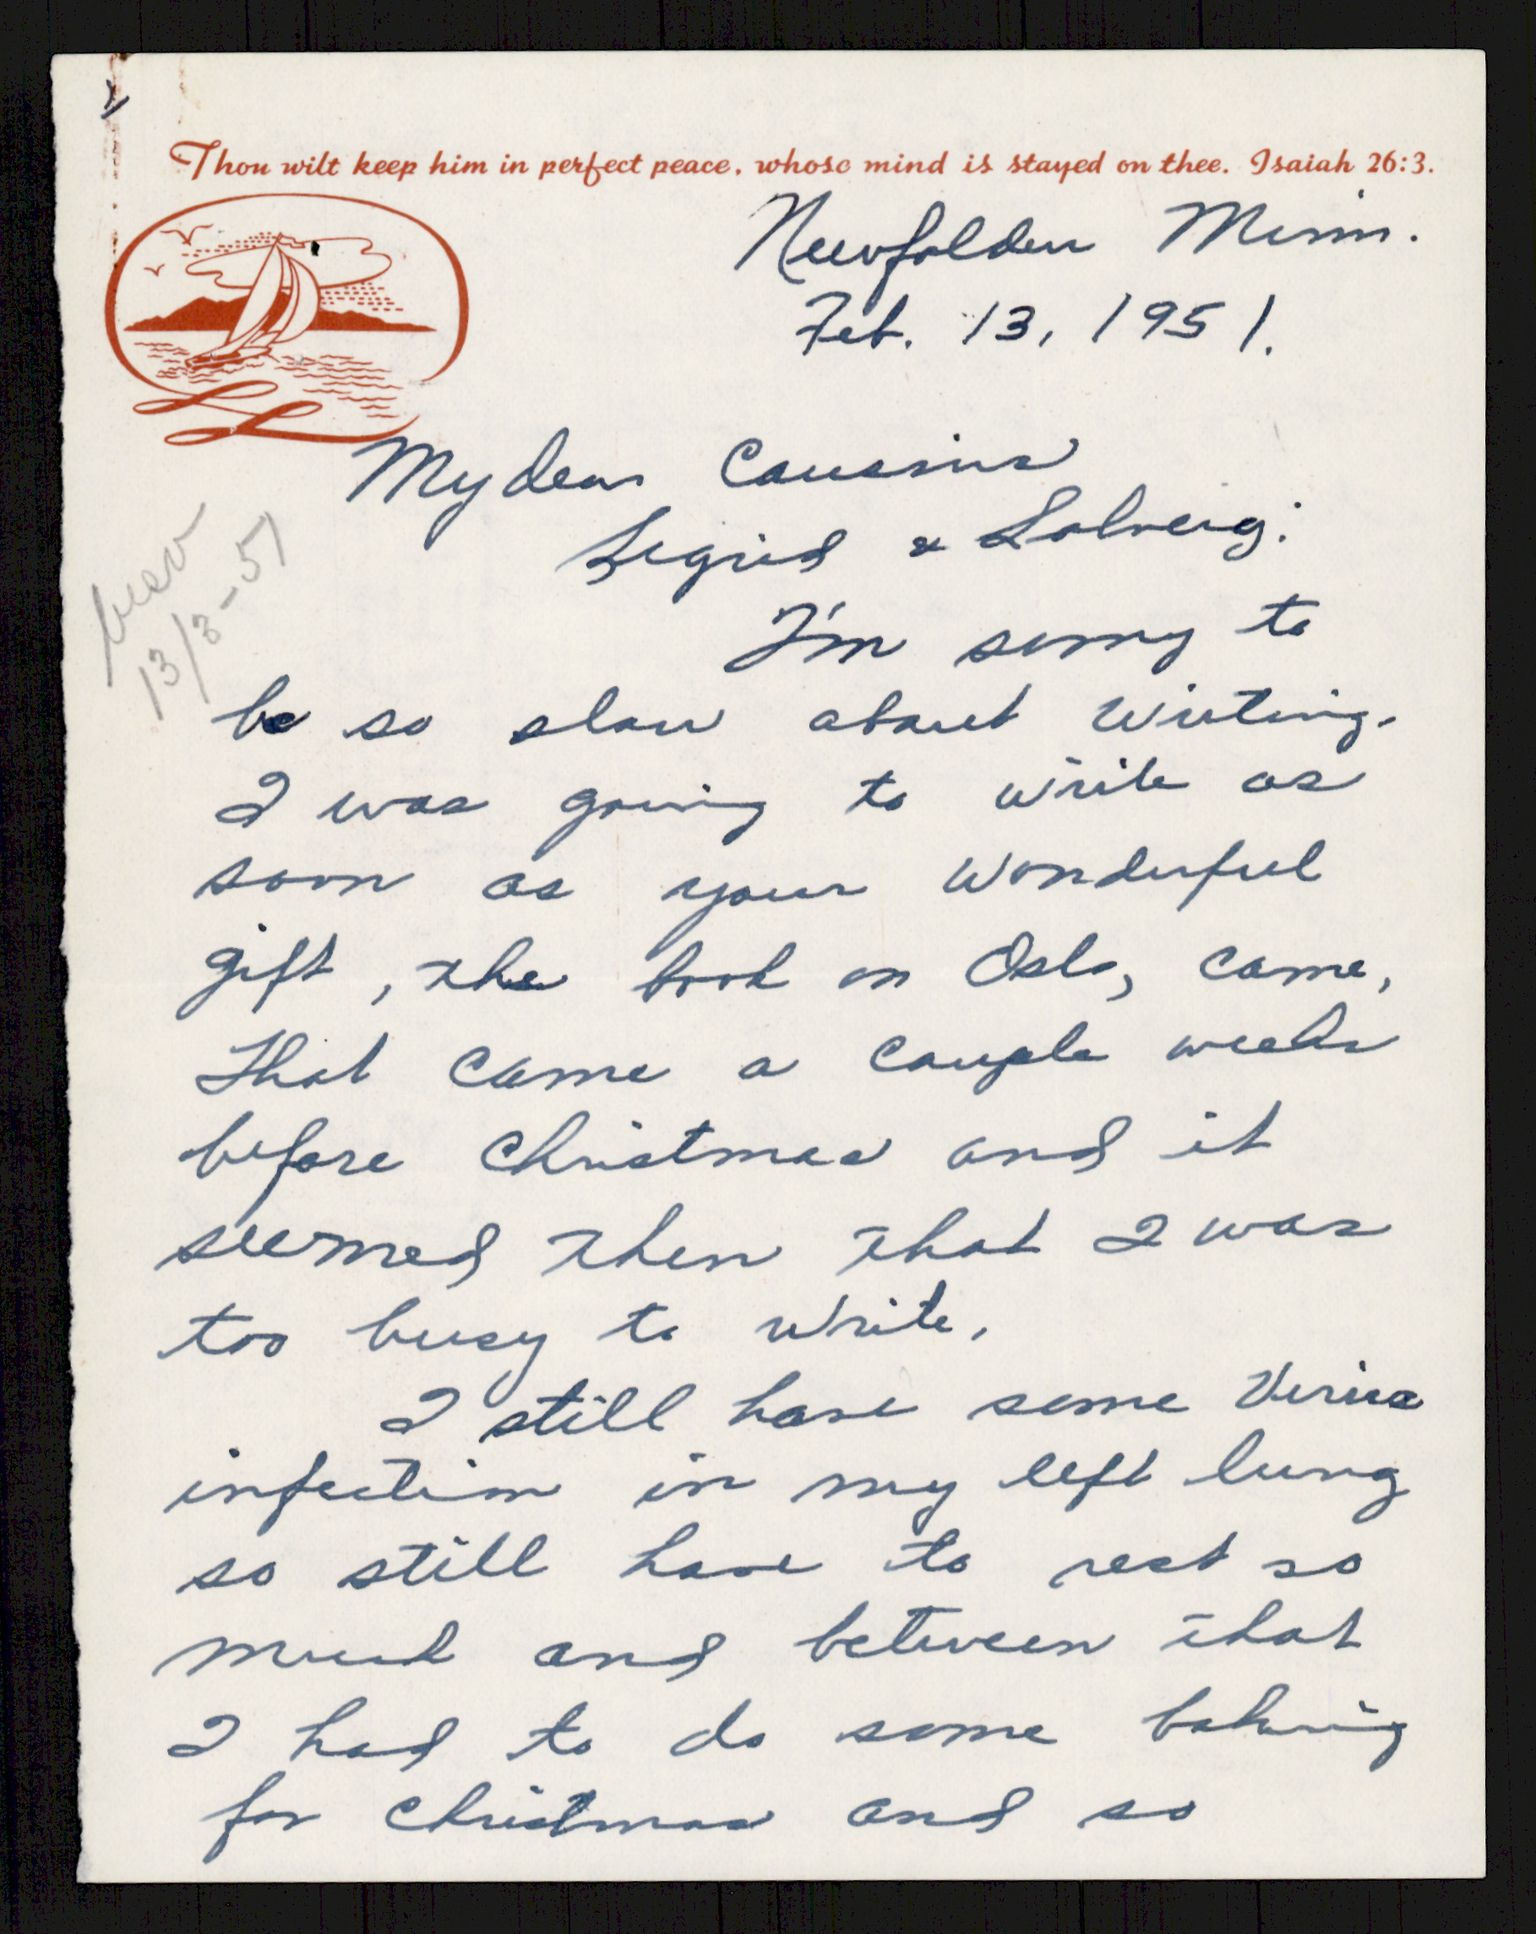 Thou wilt keep him in perfect peace, whose mind is stayed on thee. Isaiah 26:3.
Newfolden Minn.
Feb. 13, 1951.
My dear Cousins
Sigrid & Solveig:
besv
13/3-51
I'm sorry to
be so slow about writing.
I was going to write as
soon as your wonderful
gift, the book on Oslo, came,
that came a couple weeks
before Christmas and it
seemed then that I was
too busy to write.
I still have some Virus
infection in my left lung
so still have to rest so
much and between that
I had to do some baking
for Christmas and so